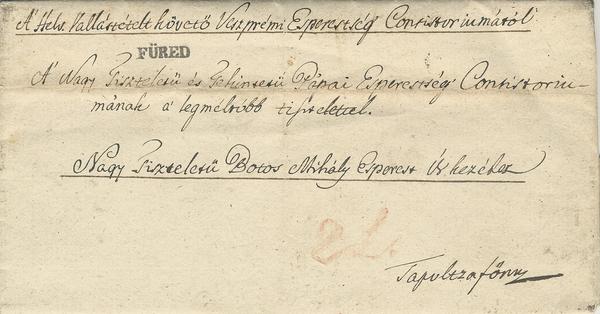 A' Helv. Vallástételt követő Veszprémi Esperestség Consistoriumától
FÜRED
A' Nagy Tiszteletü és Tekintetü Pápai Esperestség Consistoriu-
mának a' legméltóbb tisztelettel.
Nagy Tiszteletü Botos Mihály Esperest Úr kezéhez
Tapoltzafőny